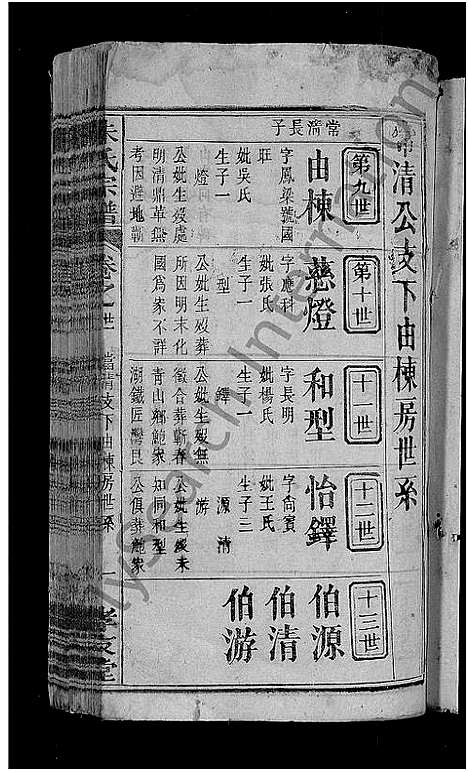 清公支下由棟房世系
第九世
常清長子
由棟
字鳳梁號國
旺
妣吳氏
生子一
燈
公妣生歿處
明清鼎革無
考因避地蘄
第十世
慈燈
字應科
妣張氏
生子一
型
公妣生歿葬
所因明末化
國爲家不詳
十一世
和型
字長明
妣楊氏
生子一
鐸
公妣生歿無
徵合葬蘄春
青山鄉鮑家
湖鐵匠灣艮
十二世
怡鐸
字尚賓
妣王氏
生子三
源 清
游
公妣生歿未
知同和型
公俱葬鮑家
十三世
伯源
伯清
伯游
朱氏宗譜
卷之世
常清支下由棟房世系
一
孝友堂
MySearch International